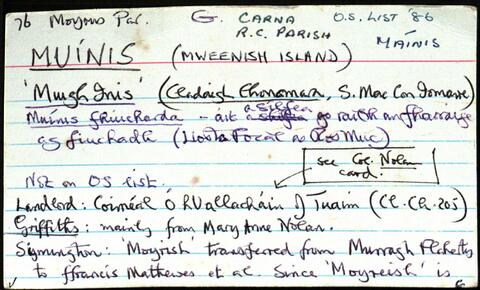 76 Moyrus Par. G. CARNA O.S. LIST '86
R.C. PARISH MAÍNIS
MUÍNIS (MWEENISH ISLAND)
'Muigh Inis' (Cladaigh Chonamara, S. Mac Con Iomaire)
Muinis fhiucharda - áit a silfea go raibh an fharraige
ag fiuchadh (Liosta Focal a Ros Muc)
see Coc. Nolan
card.
Not on OS list.
Landlord: Coirnéal Ó hUallacháin ó Thuaim (Cl. Ch. 205)
Griffiths: mainly from Mary Anne Nolan.
Symington: 'Moyrish' transferred from Murragh
to Francis Mathewes et al. Since 'Moyreish' is